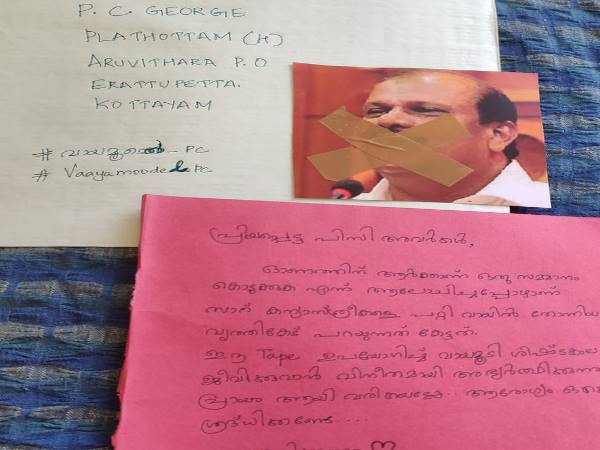 P. C. GEORGE
PLATHOTTAM (H)
ARUVITHARA P.O
ERATTUPETTA.
KOTTAYAM
# വായമൂടെടാ - PC
# VaayamoodedaPC
പ്രിയപ്പെട്ട പിസി അവർകൾ,
ഓണത്തിന് ആർക്കാണ് ഒരു സമ്മാനം
കൊടുക്കുക എന്ന് ആലോചിച്ചപ്പോഴാണ്
സാറ് കന്യാസ്ത്രീകളെ പറ്റി വായിൽ തോന്നിയ
വൃത്തികേട് പറയുന്നത് കേട്ടത്.
ഈ Tape ഉപയോഗിച്ച് വായമൂടി ശിഷ്ടകാലം
ജീവിക്കുവാൻ വിനീതമായി അഭ്യർത്ഥിക്കുന്നു
പ്രായം ആയി വരികയല്ലേ.. ആരോഗ്യം
ശ്രദ്ധിക്കണ്ടേ....